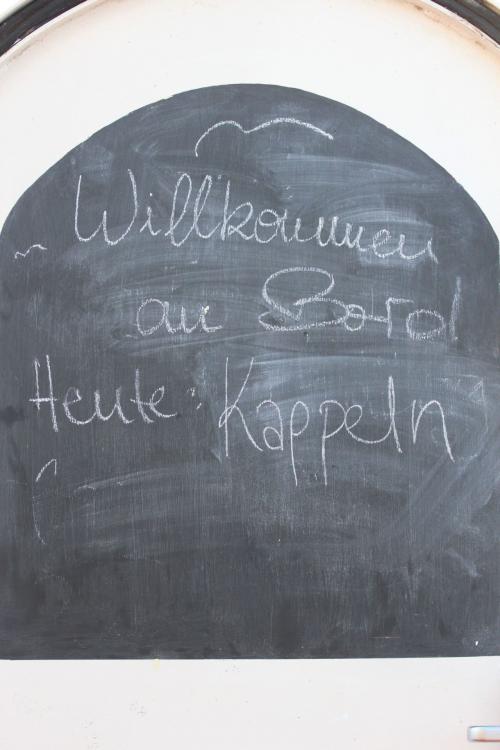 Willkommen
an Bord
Heute: Kappeln